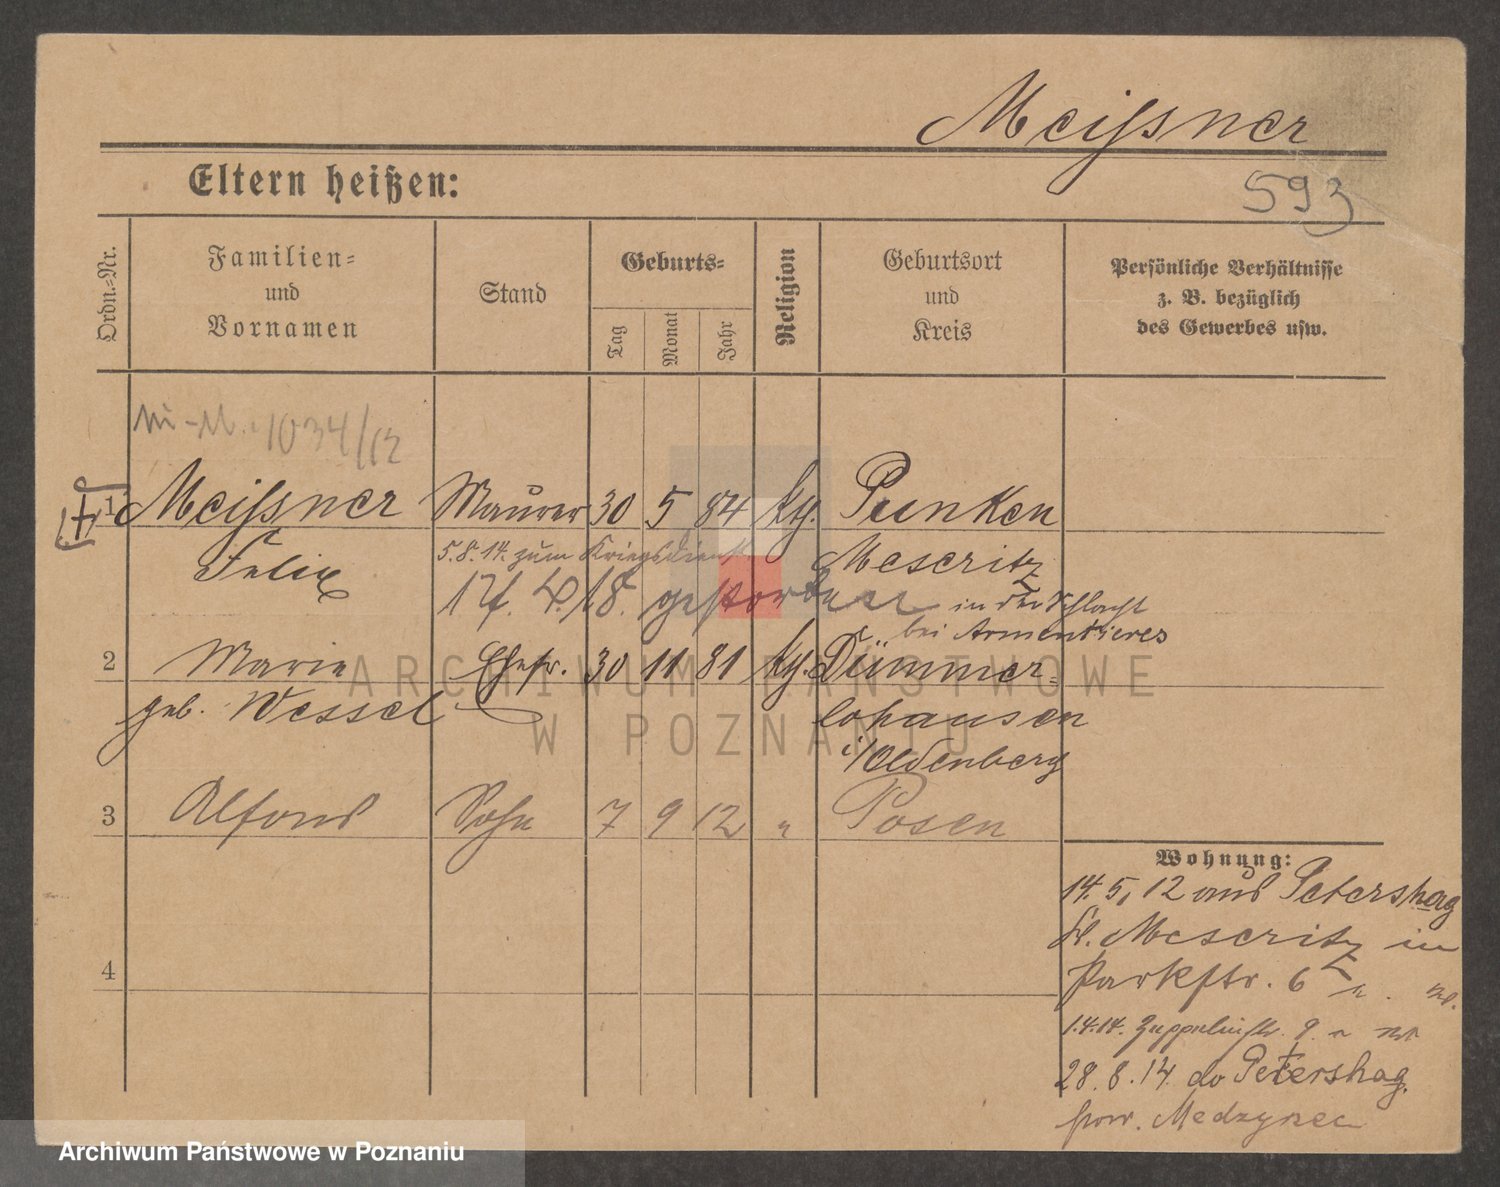 Meissner
Eltern heißen:
593
Ordn.-Nr.
Familien-
und
Vornamen
Stand
Geburts-
Tag
Monat
Jahr
Religion
Geburtsort
und
Kreis
Persönliche Verhältnisse
z. B. bezüglich
des Gewerbes usw.
1034/12
1 Meissner Maurer 30 5 84 kg. Punken
Felix 5.8.14. zum Kriegsdienst Meseritz
17. 4. 18. gestorben in der Schlacht
bei Armentieres
2 Marie Ehefr. 30 11 81 kg. Dümmer-
geb. Wessel lohausen
i/Oldenberg
3 Alfons Sohn 7 9 12 " Posen
Wohnung:
14. 5. 12 aus Petershag
Kr. Meseritz in
4
Parkstr. 6
1.4.14. Zeppelinstr. 9.
28. 8. 14. do Petershag.
pow. Medzyrzec
ARCHIWUM PAŃSTWOWE
W POZNANIU
Archiwum Państwowe w Poznaniu